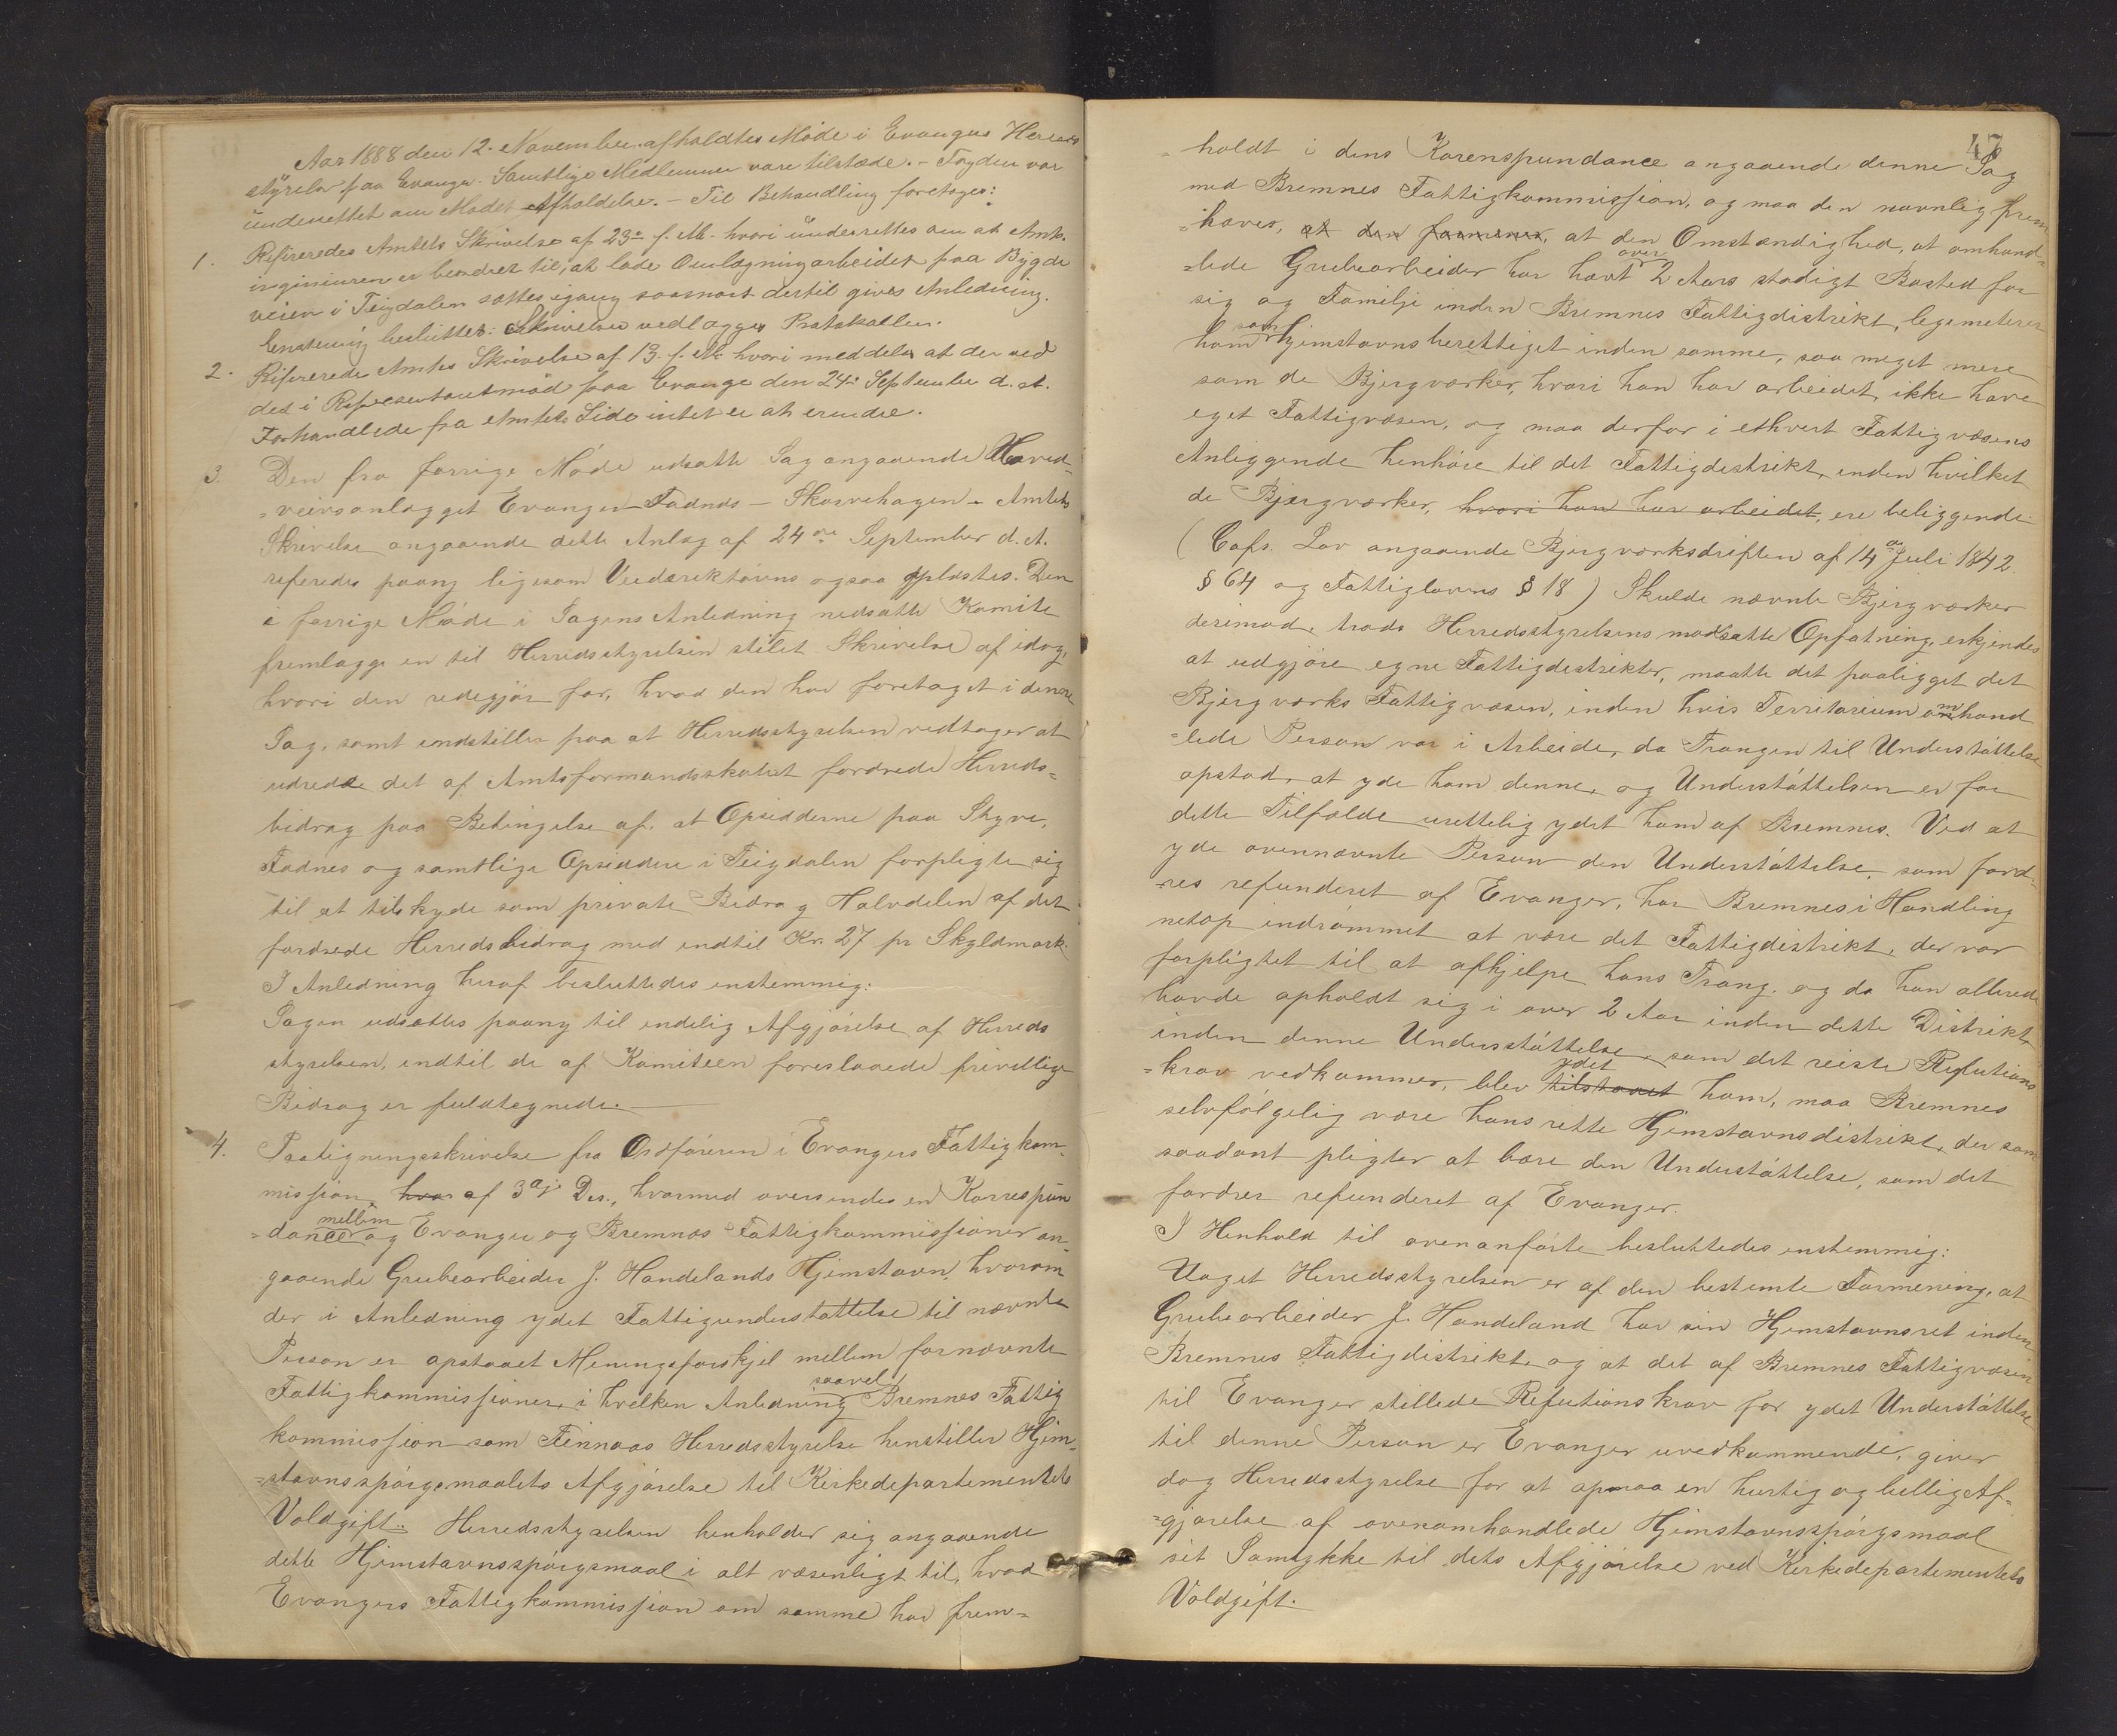 Aar 1888 den 12. November afholdtes Møde i Evanger Herreds
styrelse paa Evanger. Samtlige Medlemmer vare tilstæde. - Fogden var
underrettet om Mødet Afholdelse. - Til Behandling foretoges:
1. Refereredes Amtets Skrivelse af 23de f. M. hvori underrettes om at Amts.
ingeniøren er beordret til, at lade Omlægningarbeidet paa Bygde
veien i Teigdalen sættes igang saasnart dertil gives Anledning.
Enstemig besluttet: Skrivelsen vedlægges Protokollen.
2. Refererede Amtes Skrivelse af 13. f. M. hvori meddeles at der ved
det i Representantmød paa Evanger den 24de September d. A.
Forhandlede fra Amtets Side intet er at erindre.
3. Den fra forrige Møde udsatte Sag angaaende Hoved-
=veiesanlægget Evanger Fadnes - Skorvehagen. Amtets
Skrivelse angaaende dette Anlæg af 24de September d. A.
referedes paany ligesom Veidirektørens ogsaa oplæstes. Den
i forrige Møde i Sagens Anledning nedsatte Komite
fremlægge en til Herredsstyrelsen stilet Skrivelse af idag,
hvori den redegjør for, hvad den har foretaget i denne
Sag, samt indstiller paa at Herredsstyrelsen vedtager at
udrede det af Amtsformandskabet fordrede Herreds=
bidrag paa Betingelse af, at Opsidderne paa Skyve,
Fadnes og samtlige Opsiddere i Teigdalen forpligte sig
til at tilskyde som private Bidrag Halvdelen af det
fordrede Herredsbidrag med indtil Kr. 27 pr Skyldmark.
I Anledning heraf besluttedes enstemmig:
Sagen udsættes paany til endelig Afgjørelse af Herreds
styrelsen, indtil de af Komiteen foreslaaede frivillige
Bidrag er fuldtegnede.
4. Paategningsskrivelse fra Ordføreren i Evangers Fattigkom-
mission, hvor af 3die Ds., hvormed oversendes en Korrespon
=dancer mellem og Evanger og Bremnes Fattigkommissioner an-
gaaende Grubearbeider J. Handelands Hjemstavn, hvorom
der i Anledning ydet Fattigunderstøttelse til nævnte
Person er opstaaet Meningsforskjel mellem fornævnte
Fattigkommissioner, i hvilken Anledning saavel Bremnes Fattig
kommission som Finnaas Herredsstyrelse henstiller Hjem-
=stavnsspørgsmaalets Afgjørelse til Kirkedepartementets
Voldgift. Herredsstyrelsen henholder sig angaaende
dette Hjemstavnsspørgsmaal i alt væsenligt til, hvad
Evangers Fattigkommission om samme har frem=
47
=holdt i dens Korenspundance angaaende denne Sag
med Bremnes Fattigkommission, og maa den navnlig frem
=hæves, at den formener, at den Omstændighed, at omhand=
=lede Grubearbeider har havt over 2 Aars stadigt Bosted for
sig og Familje inden Bremnes Fattigdistrikt, legemeterer
ham som Hjemstavnsberettiget inden samme, saa meget mere
som de Bjergværker, hvori han har arbeidet, ikke have
eget Fattigvæsen, og maa derfor i ethvert Fattigvæsens
Anliggende henhøre til det Fattigdistrikt, inden hvilket
de Bjergværker, hvori han har arbeidet, ere beliggende
(Cofr. Lov angaaende Bjergværksdriften af 14de Juli 1842.
§ 64 og Fattiglovens § 18) Skulde nævnte Bjergværker
derimod, trods Herredsstyrelsens modsatte Opfatning, erkjendes
at udgjøre egne Fattigdistrikter, maatte det paaligget det
Bjergværks Fattigvæsen, inden hvis Territorium omhand
=lede Person var i Arbeide, da Trangen til Understøttelse
opstod, at yde ham denne, og Understøttelsen er for
dette Tilfælde urettelig ydet ham af Bremnes. Ved at
yde ovennævnte Person den Understøttelse, som ford=
=res refunderet af Evanger, har Bremnes i Handling
netop indrømmet at være det Fattigdistrikt, der var
forpligtet til at afhjelpe hans Trang. og da han allerede
havde opholdt sig i over 2 Aar inden dette Distrikt,
inden denne Understøttelse, som det reiste Refutions
=krav vedkommer, blev tilstaaet ydet ham, maa Bremnes
selvfølgelig være hans rette Hjemstavnsdistrikt, der som
saadant pligter at bære den Understøttelse, som det
fordrer refunderet af Evanger.
I Henhold til ovenanførte besluttedes enstemmig:
Herredsstyrelsen er af den bestemte Formening, at
Grubearbeider J. Handeland har sin Hjemstavnsret inden
Bremnes Fattigdistrikt, og at det af Bremnes Fattigvæsen
til Evanger stillede Refutionskrav for ydet Understøttelse
til denne Person er Evanger uvedkommende, giver
dog Herredsstyrelse for at opnaa en hurtig og billig Af=
=gjørelse af ovenomhandlede Hjemstavnsspørgsmaal
sit Samtykke til dets Afgjørelse ved Kirkedepartementets
Voldgift.